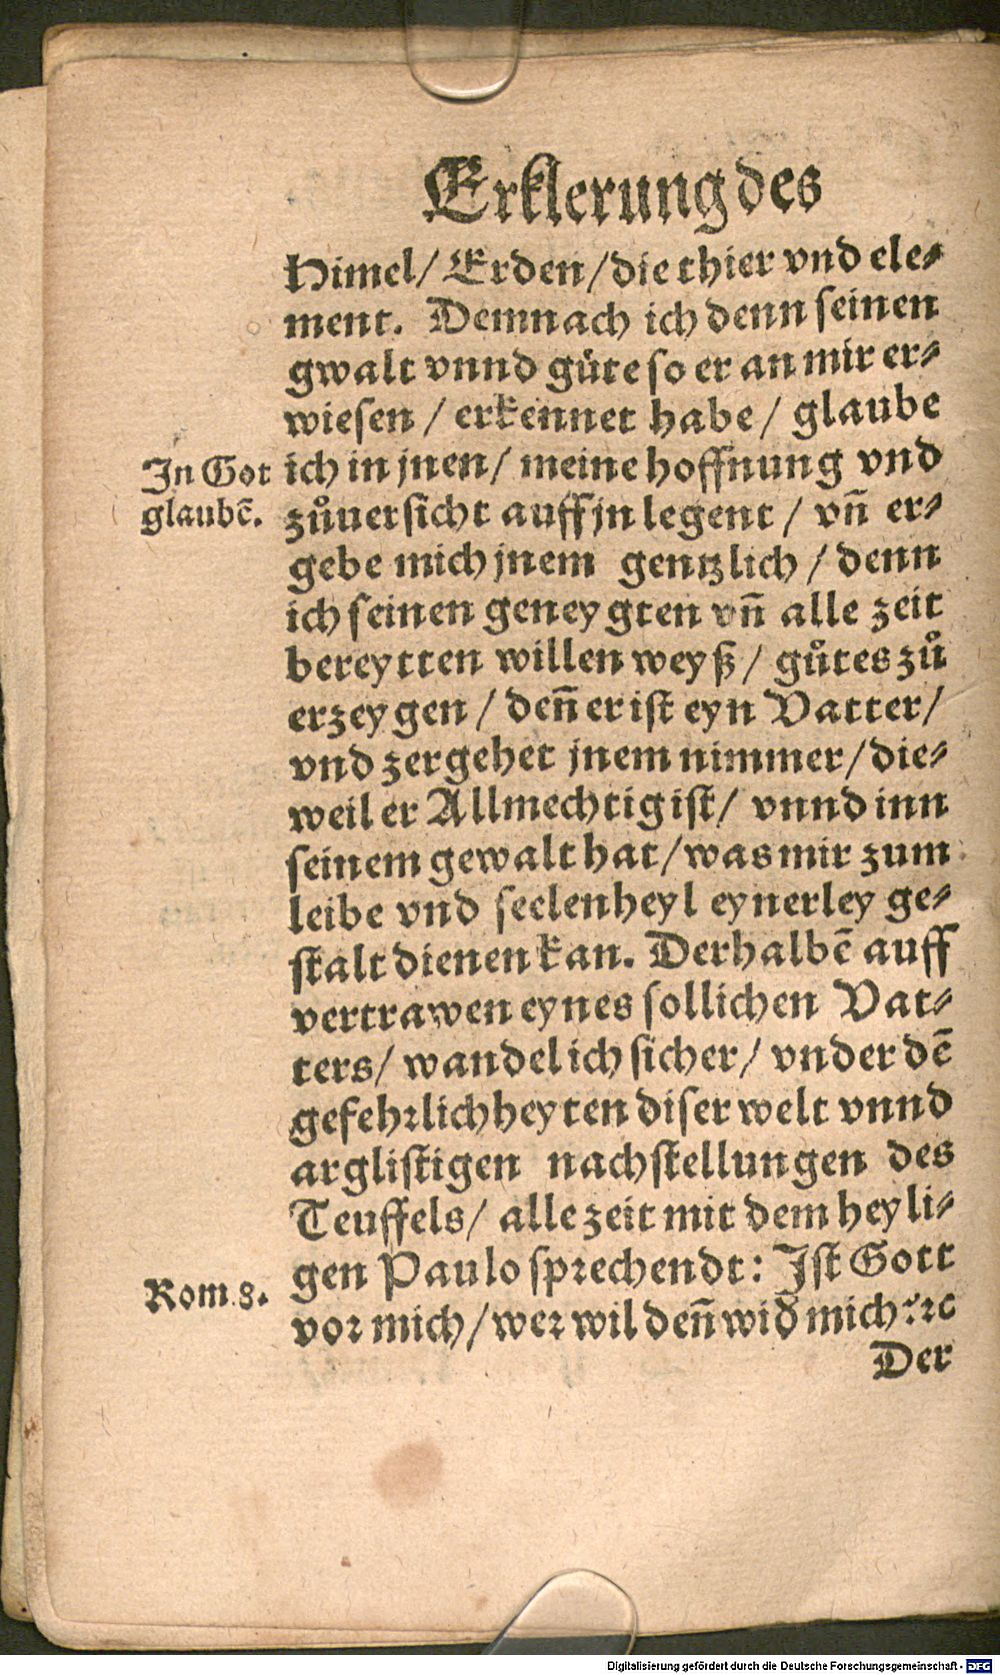 Erklerung des
Himel/ Erden/ die thier vnd ele⸗
ment. Demnach ich denn seinen
gwalt vnnd guͤte so er an mir er⸗
wiesen / erkennet habe / glaube
In Got
glaubē.
ich in jnen/ meine hoffnung vnd
zůuersicht auff jn legent / vn̄ er⸗
gebe mich jnem gentzlich / denn
ich seinen geneygten vn̄ alle zeit
bereytten willen weyß / gůtes zů
erzeygen / den̄ er ist eyn Vatter/
vnd zergehet jnem nimmer/ die⸗
weil er Allmechtig ist/ vnnd inn
seinem gewalt hat/ was mir zum
leibe vnd seelenheyl eynerley ge⸗
stalt dienen kan. Derhalbē auff
vertrawen eynes sollichen Vat⸗
ters/ wandel ich sicher/ vnder dē
gefehrlichheyten diser welt vnnd
arglistigen nachstellungen des
Teuffels/ alle zeit mit dem heyli⸗
gen Paulo sprechendt: Ist Gott
Rom 8.
vor mich/ wer wil den̄ wid̄ mich? ꝛc
Der
Digitalisierung gefördert durch die Deutsche Forschungsgemeinschaft - DFG